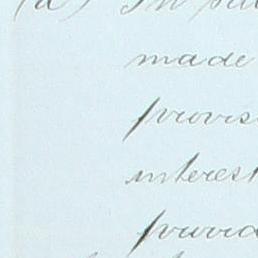 (a) In
made
provis
interest
provid